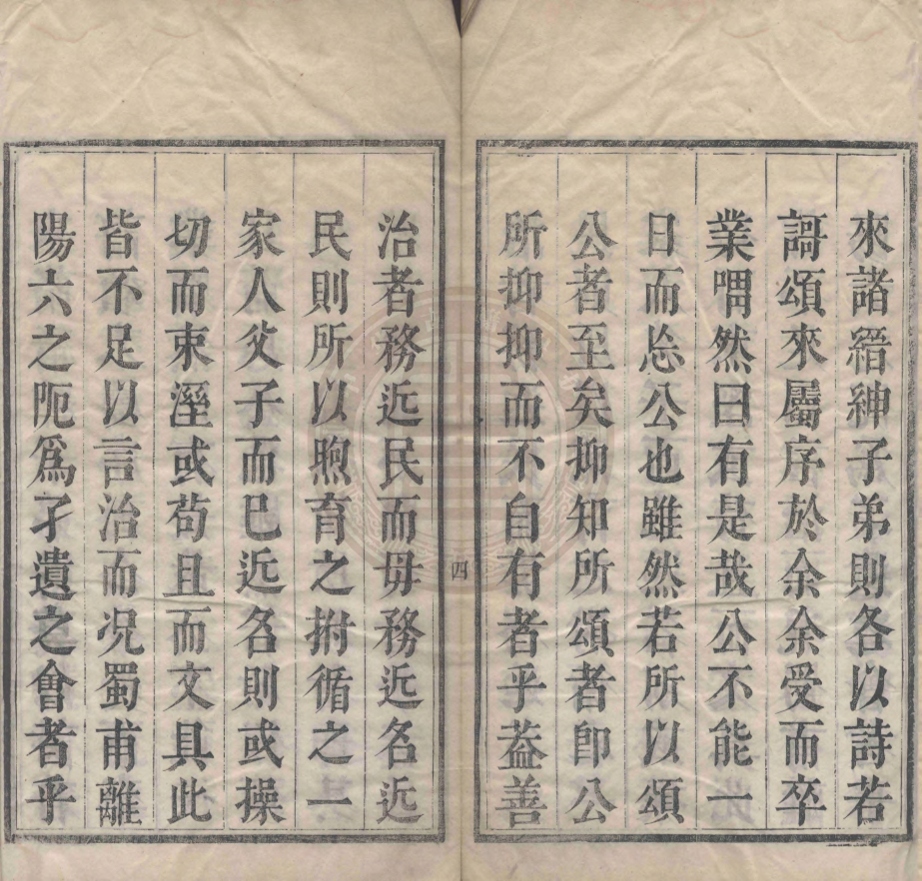 來諸縉紳子弟則各以詩若
謌頌來屬序於余余受而卒
業喟然曰有是哉公不能一
日而忘公也雖然若所以頌
公者至矣抑知所頌者卽公
所抑抑而不自有者乎葢善
四
治者務近民而毋務近名近
民則所以煦育之拊循之一
家人父子而巳近名則或操
切而束溼或苟且而文具此
皆不足以言治而况蜀甫離
陽六之阨爲孑遺之會者乎